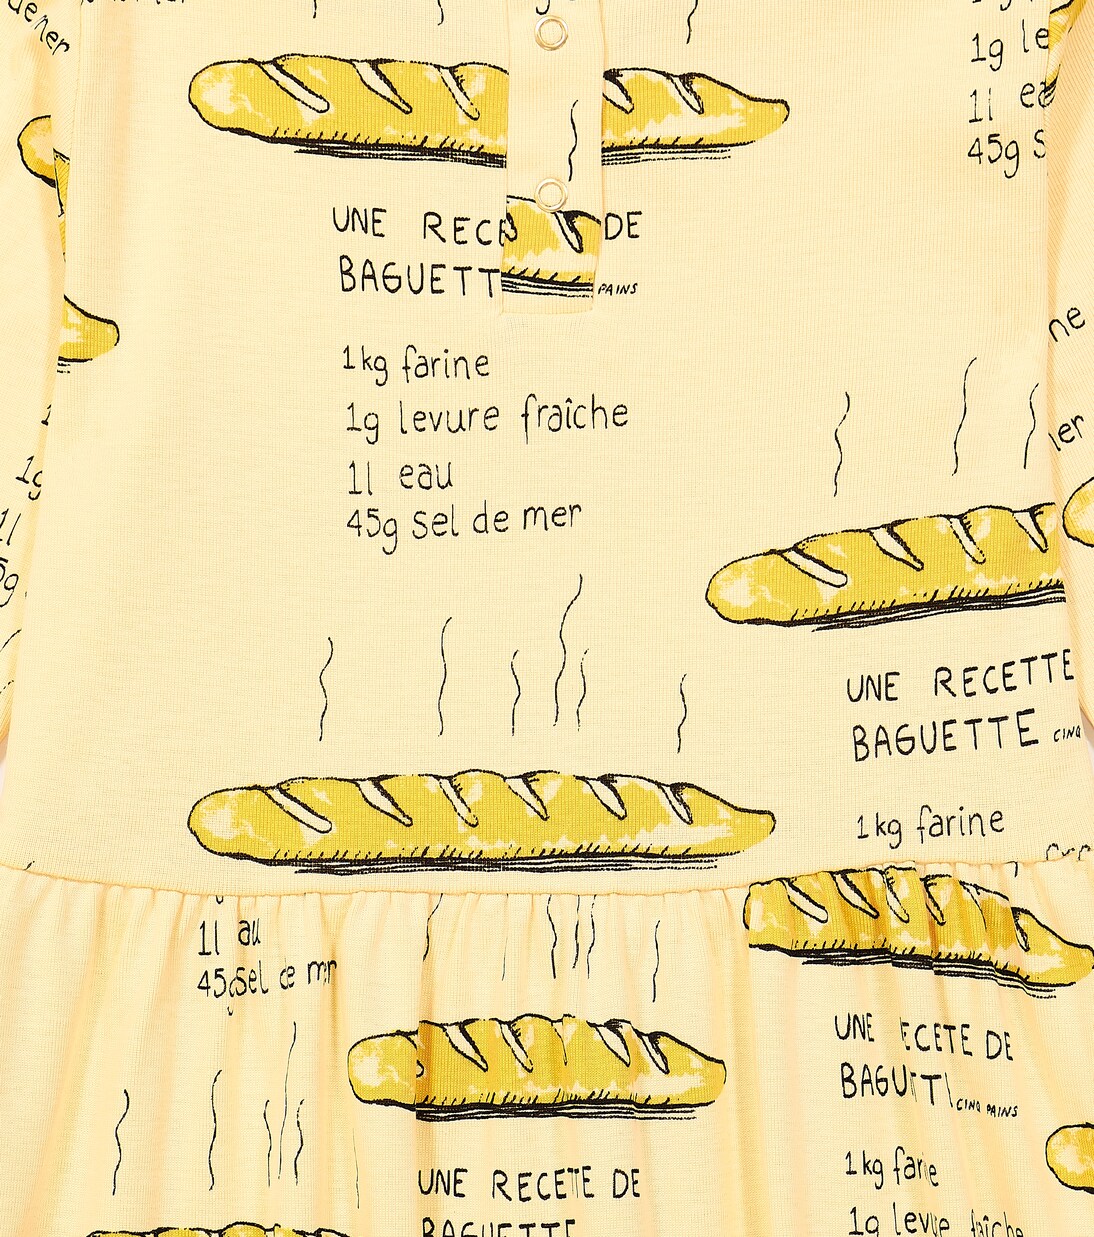 dener
1g le
1l ea
45g s
UNE RECE DE
BAGUETT PAINS
1kg farine
1g levure fraîche
1l eau
45g sel de mer
ne
ler
1g
1l
5g
UNE RECETTE
BAGUETTE CINQ
1kg farine
1l au
45g sel de mr
UNE RECETE DE
BAGUETT CINQ PAINS
1kg farie
1g levure fraîche
UNE RECETTE DE
BAGUETTE